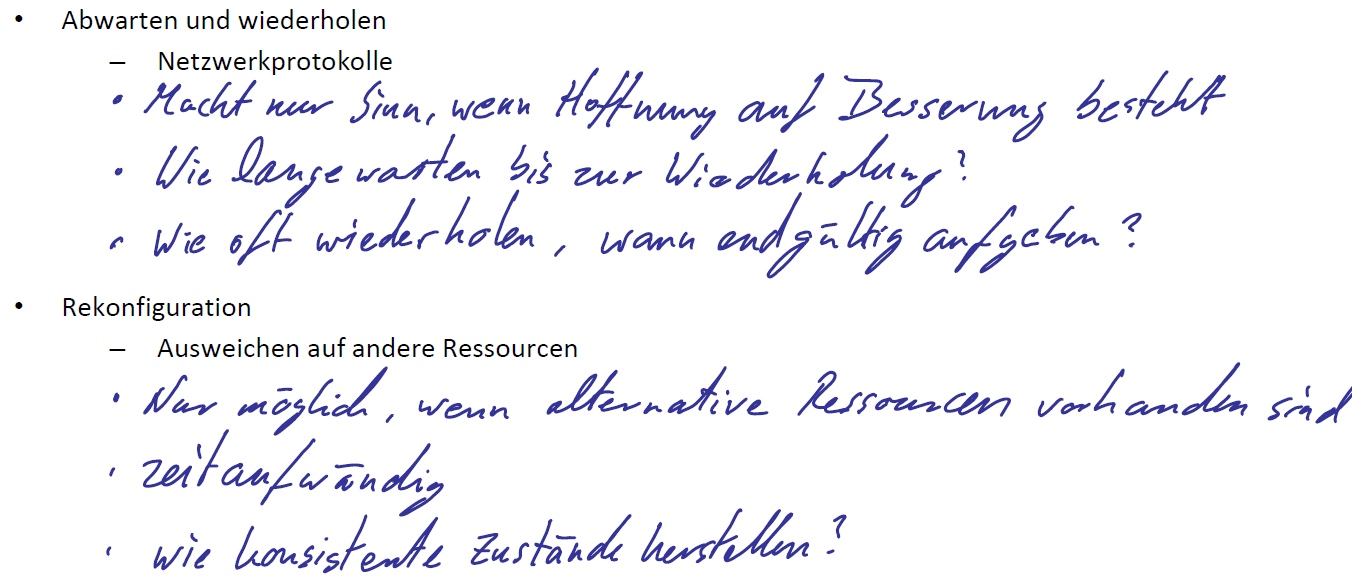 • Abwarten und wiederholen
– Netzwerkprotokolle
• Macht nur Sinn, wenn Hoffnung auf Besserung besteht
• Wie lange warten bis zur Wiederholung?
• Wie oft wiederholen, wann endgültig aufgeben?
• Rekonfiguration
– Ausweichen auf andere Ressourcen
• Nur möglich, wenn alternative Ressourcen vorhanden sind
• zeitaufwändig
• wie konsistente Zustände herstellen?